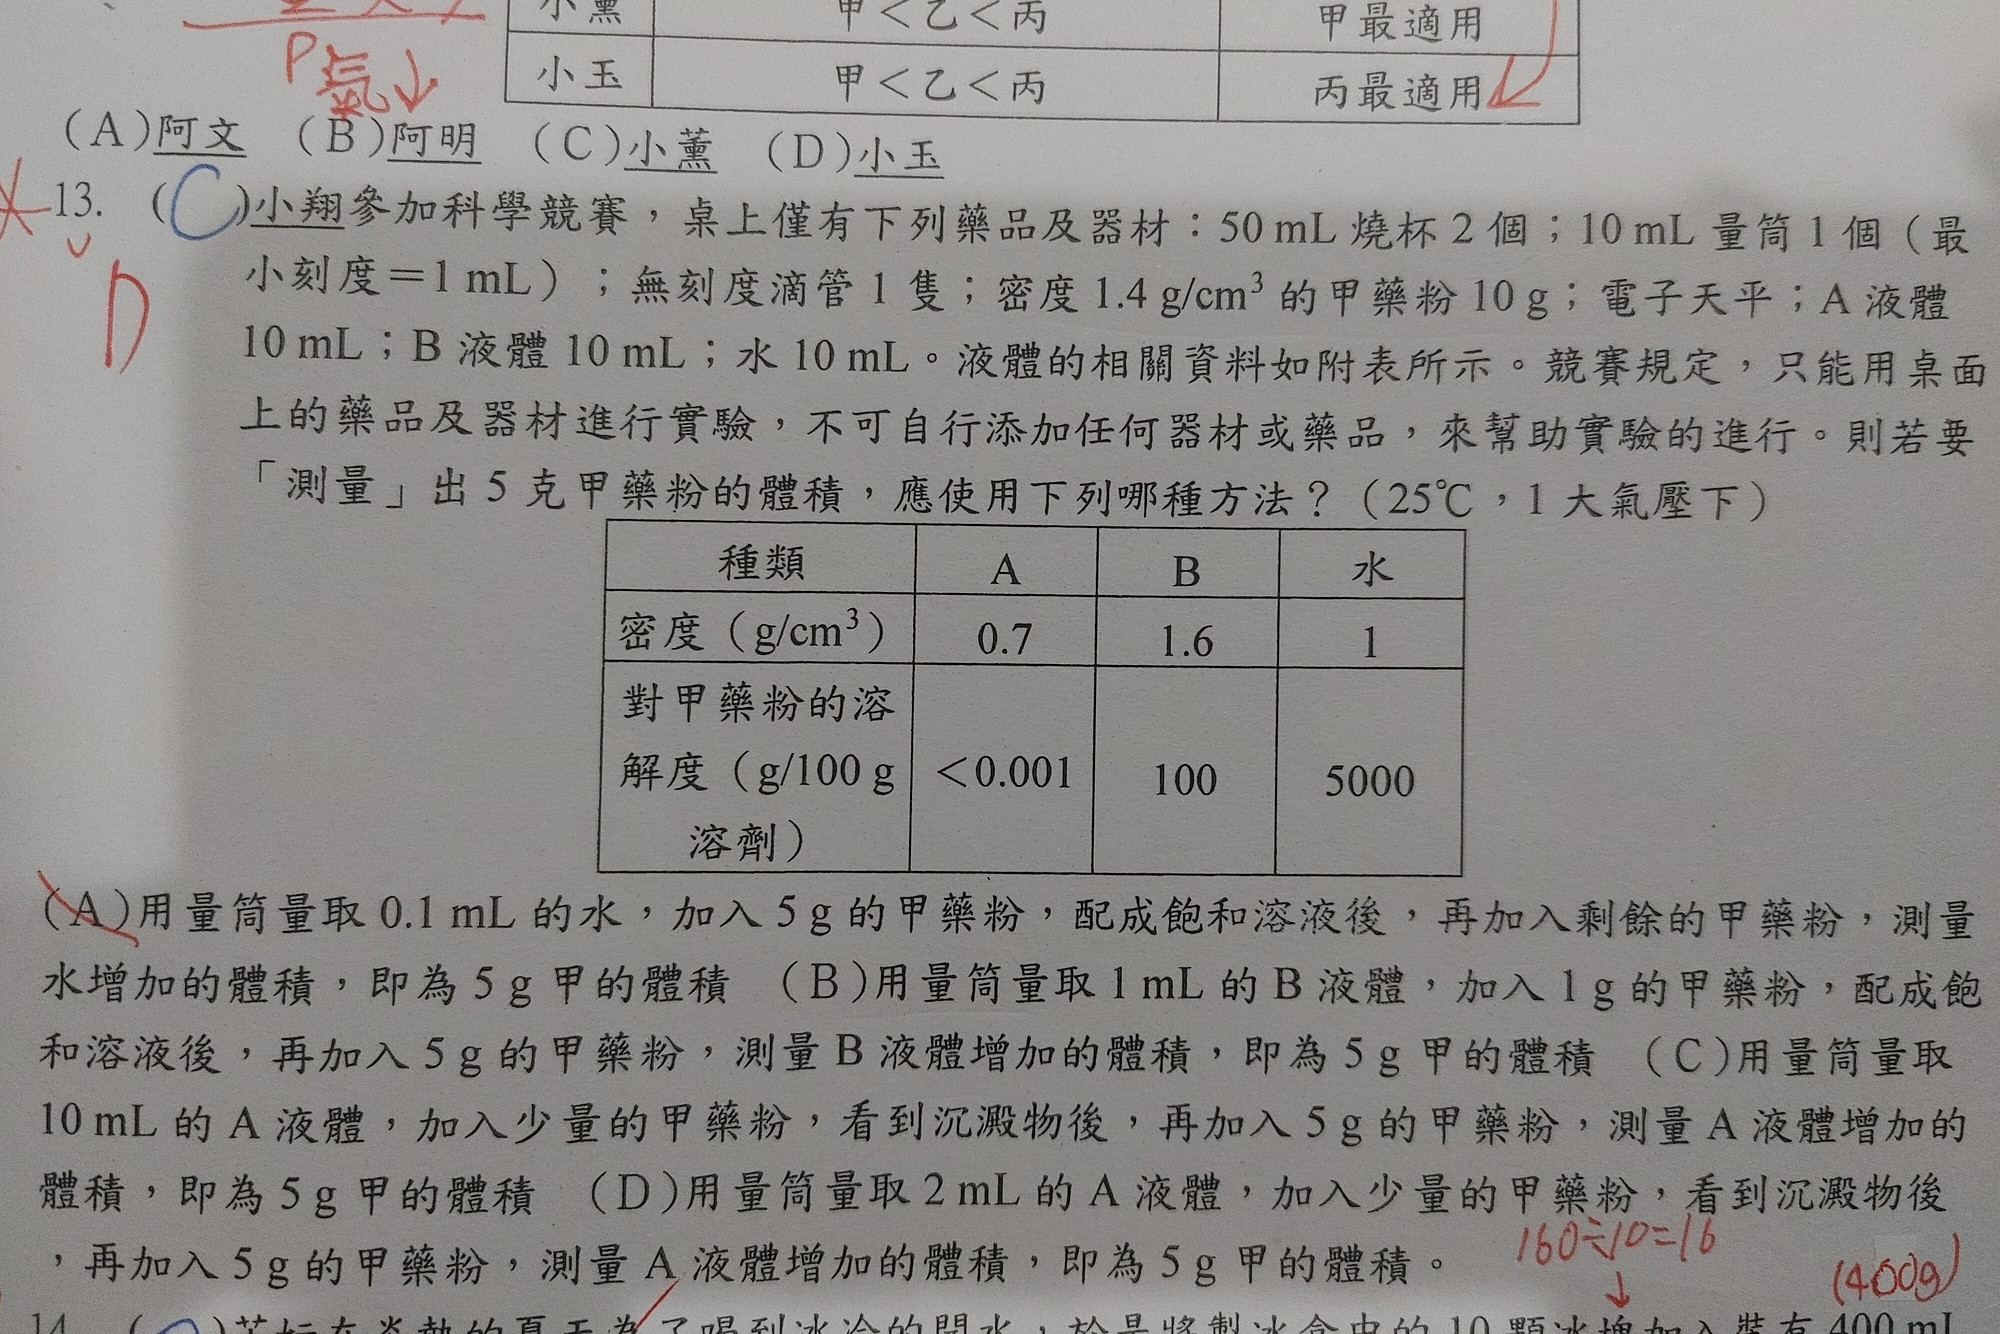 小薰 甲＜乙＜丙 甲最適用
P氣↓
小玉 甲＜乙＜丙 丙最適用
(A)阿文 (B)阿明 (C)小薰 (D)小玉
13. (C)小翔參加科學競賽，桌上僅有下列藥品及器材：50 mL 燒杯 2 個；10 mL 量筒 1 個（最
小刻度＝1 mL）；無刻度滴管 1 隻；密度 1.4 g/cm³ 的甲藥粉 10 g；電子天平；A 液體
D
10 mL；B 液體 10 mL；水 10 mL。液體的相關資料如附表所示。競賽規定，只能用桌面
上的藥品及器材進行實驗，不可自行添加任何器材或藥品，來幫助實驗的進行。則若要
「測量」出 5 克甲藥粉的體積，應使用下列哪種方法？（25℃，1 大氣壓下）
種類 A B 水
密度（g/cm³） 0.7 1.6 1
對甲藥粉的溶
解度（g/100 g ＜0.001 100 5000
溶劑）
(A)用量筒量取 0.1 mL 的水，加入 5 g 的甲藥粉，配成飽和溶液後，再加入剩餘的甲藥粉，測量
水增加的體積，即為 5 g 甲的體積 (B)用量筒量取 1 mL 的 B 液體，加入 1 g 的甲藥粉，配成飽
和溶液後，再加入 5 g 的甲藥粉，測量 B 液體增加的體積，即為 5 g 甲的體積 (C)用量筒量取
10 mL 的 A 液體，加入少量的甲藥粉，看到沉澱物後，再加入 5 g 的甲藥粉，測量 A 液體增加的
體積，即為 5 g 甲的體積 (D)用量筒量取 2 mL 的 A 液體，加入少量的甲藥粉，看到沉澱物後
，再加入 5 g 的甲藥粉，測量 A 液體增加的體積，即為 5 g 甲的體積。
160÷10=16
(400g)
14. 在炎熱的夏天為了喝到冰冷的開水，於是將製冰盒中的 10 顆冰塊加入裝有 400 mL